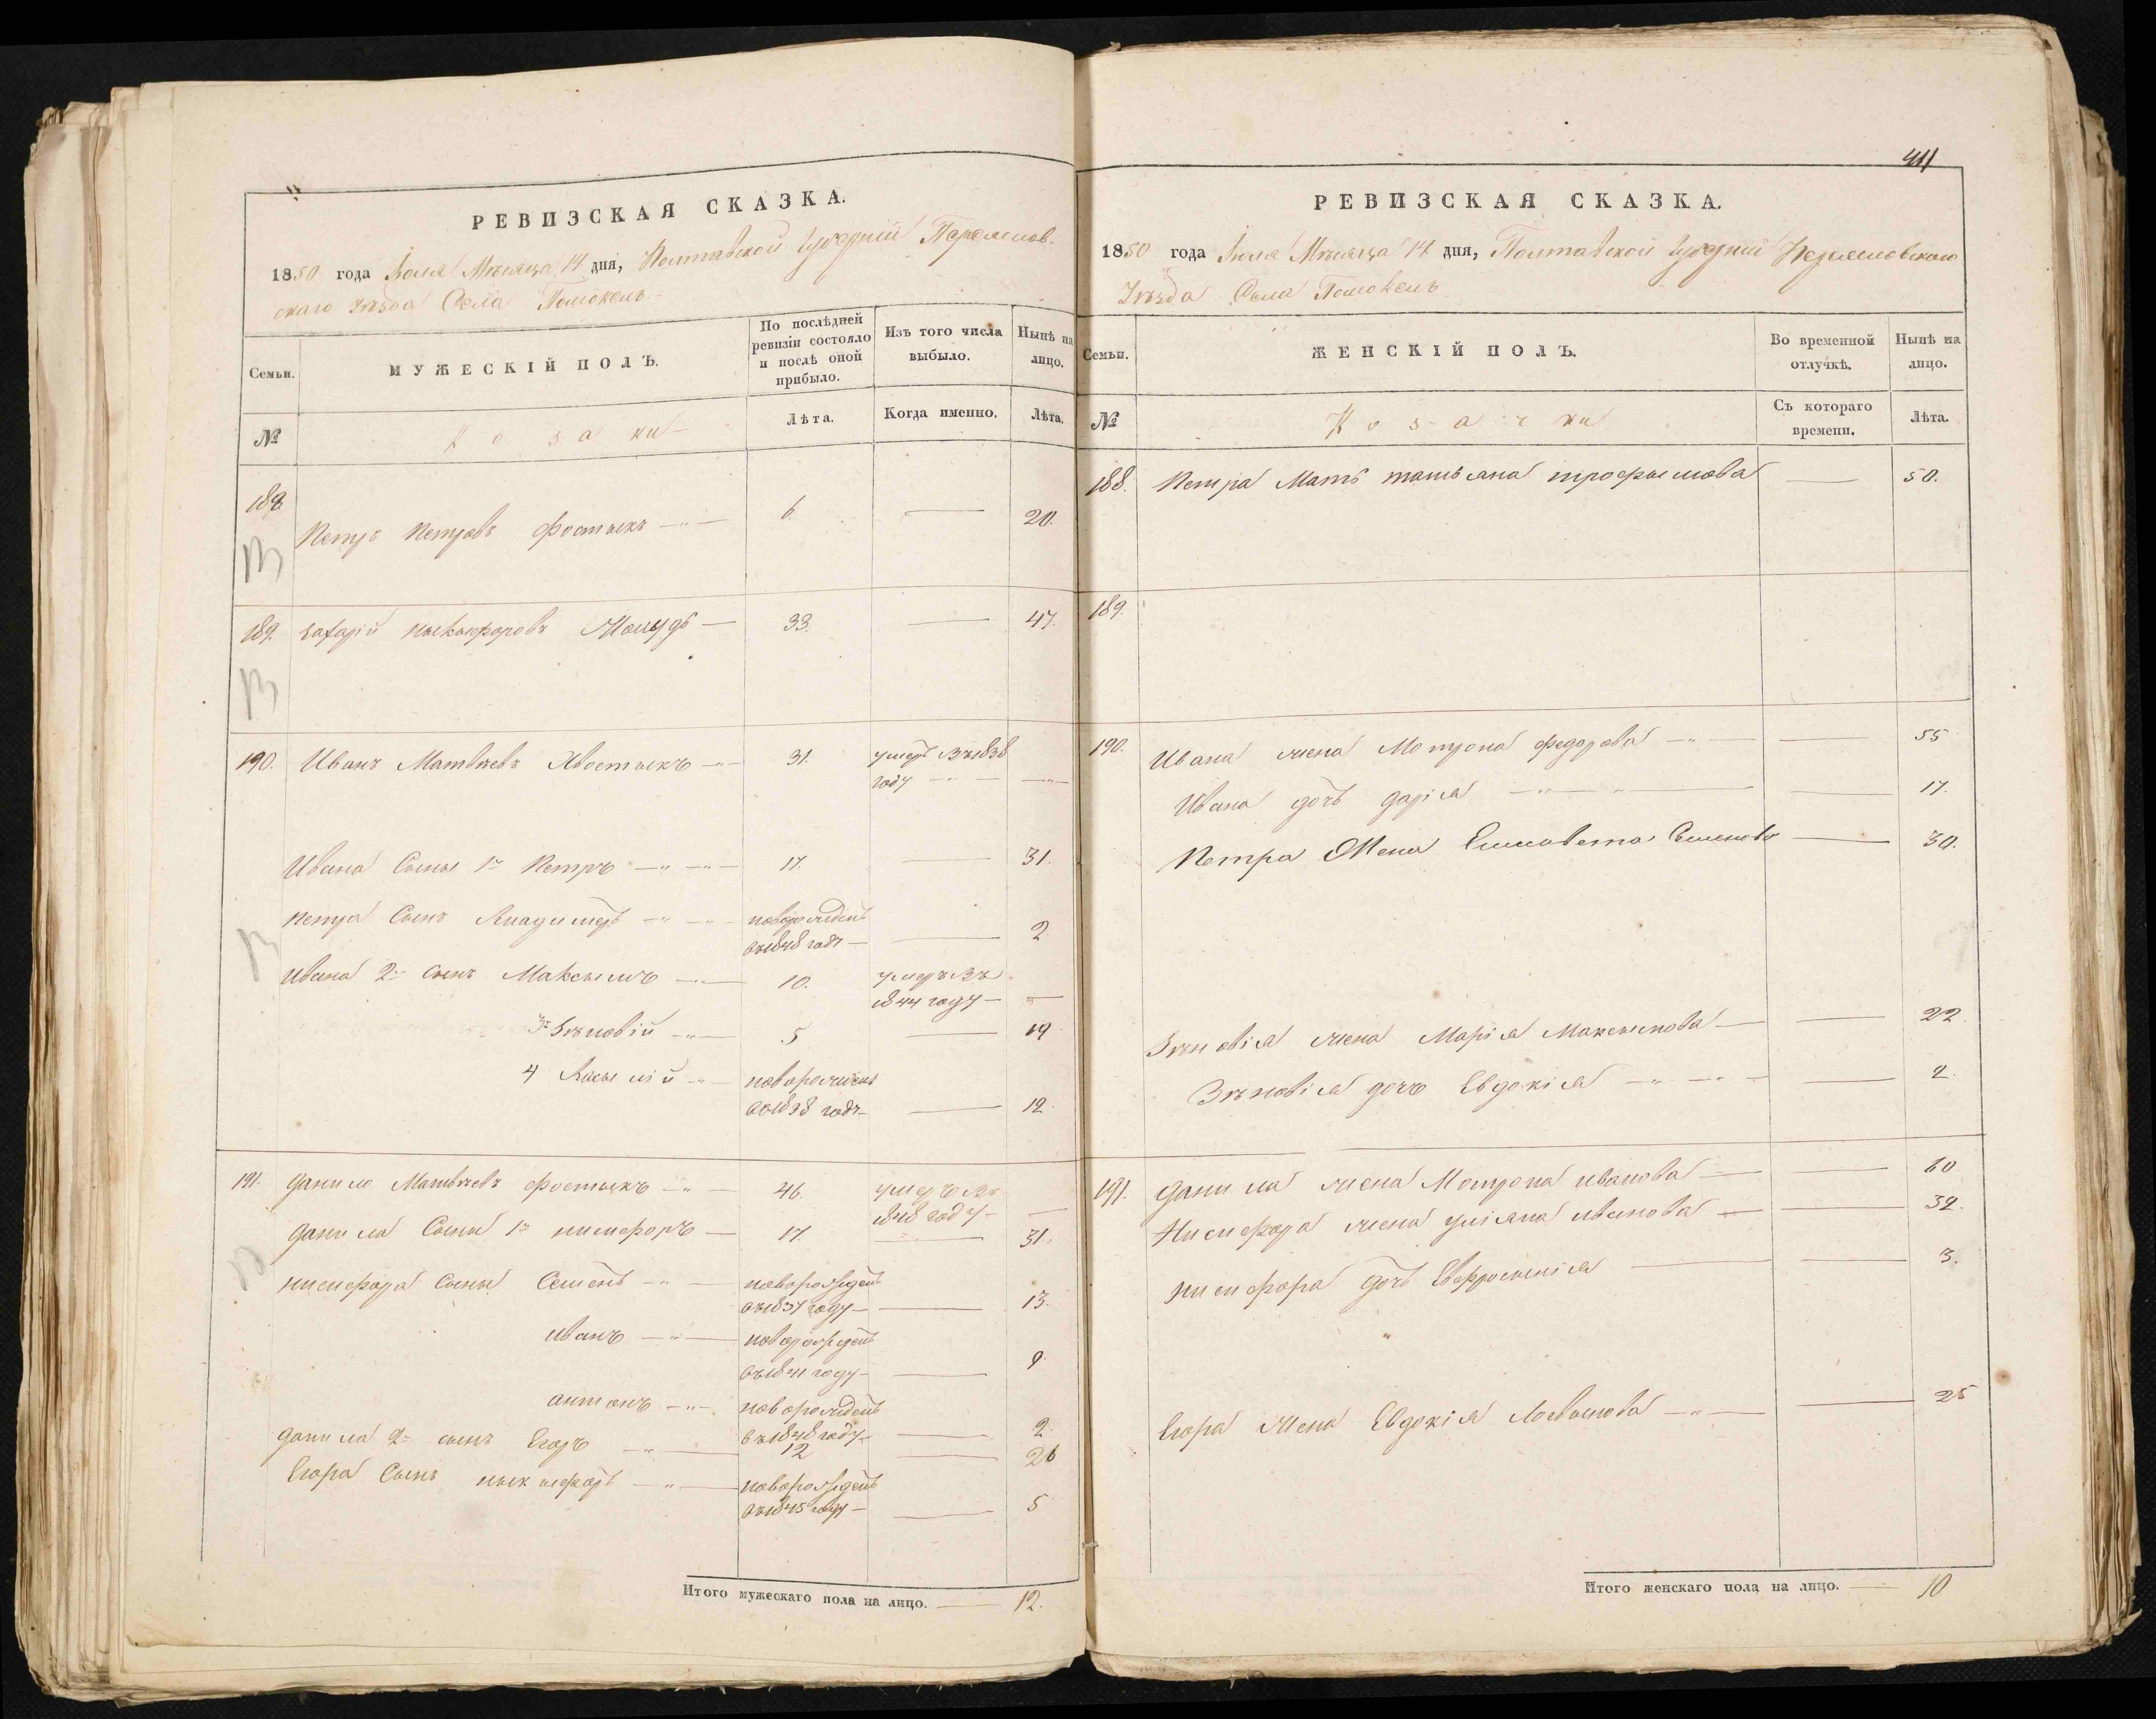 РЕВИЗСКАЯ СКАЗКА.
1850 года Іюля Мѣсяца 14 дня, Полтавской Губерніи Переяслов-
скаго уѣзда Села Помокель
Семьи.
МУЖЕСКІЙ ПОЛЪ.
По послѣдней ревизіи состояло и послѣ оной прибыло.
Изъ того числа выбыло.
Нынѣ на лицо.
№
Козаки
Лѣта.
Когда именно.
Лѣта.
188
Петръ Петровъ Фостыкъ 6. 20.
189. Захарій Ныкыфоровъ 33. 47.
190. Иванъ Матвѣевъ Хвостыкъ 31. умеръ въ 1838
году
Ивана Сыны 1й Петръ 17. 31.
Петра Сынъ Владимеръ новорожденъ
въ 1848 годѣ 2
Ивана 2й сынъ Максымъ 10. умеръ въ
1844 году
3й Зѣновій 5 19
4 Васылій новорожденъ
въ 1838 годѣ 12
191. Данило Матвѣевъ Фостыкъ 46. умеръ въ
1848 году
Данила Сыны 1й Нисифоръ 17. 31.
Нисифора Сыны Семенъ новорожденъ
въ 1837 году 13.
Иванъ новорожденъ
въ 1841 году 9
Антонъ новорожденъ
въ 1848 году 2.
Данила 2й сынъ Егоръ 12 26
Егора Сынъ Ныкыфоръ новорожденъ
въ 1845 году 5
Итого мужескаго пола на лицо. 12.
411
РЕВИЗСКАЯ СКАЗКА.
1850 года Іюля Мѣсяца 14 дня, Полтавской Губерніи Переясловскаго
Уѣзда Села Помокель
Семьи.
ЖЕНСКІЙ ПОЛЪ.
Во временной отлучкѣ.
Нынѣ на лицо.
№
Козачки
Съ котораго времени.
Лѣта.
188. Петра Мать Татьяна Трофымова 50.
189.
190. Ивана жена Мотрона Федорова 55
Ивана дочь Дарія 17.
Петра Жена Елисавета Семенова 30.
Зѣновія жена Марія Максымова 22
Зѣновія дочь Евдокія 2.
191. Данила жена Мотрона Иванова 60
Нисифора жена Уліяна Иванова 32.
Нисифора дочь Евфросынія 3.
Егора жена Евдокія 25
Итого женскаго пола на лицо. 10